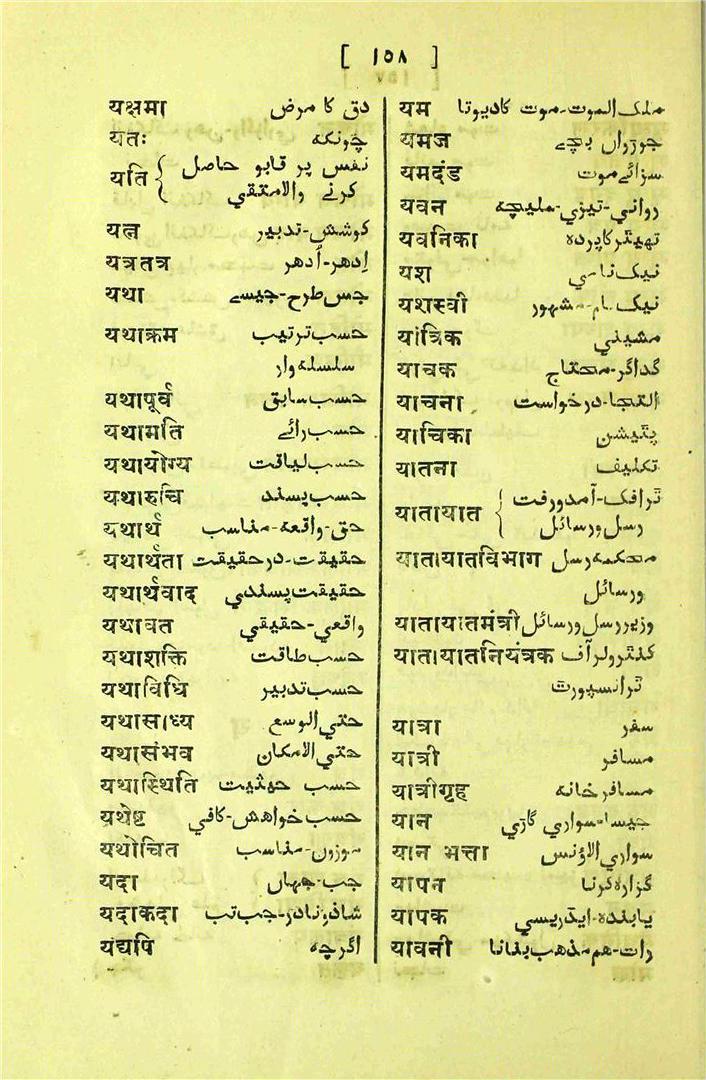 [ ١٥٨ ]
यक्षमा دق کا مرض
यतः چونکہ
यति { نفس پر قابو حاصل
کرنے والا-متقی
यत्न کوشش-تدبیر
यत्रतत्र اِدھر-اُدھر
यथा جس طرح-جیسے
यथाक्रम حسب ترتیب
سلسلہ وار
यथापूर्व حسب سابق
यथामति حسب رائے
यथायोग्य حسب لیاقت
यथारुचि حسب پسند
यथार्थ حق-واقعہ-مناسب
यथार्थता حقیقت-در حقیقت
यथार्थवाद حقیقت پسندی
यथावत واقعی-حقیقی
यथाशक्ति حسب طاقت
यथाविधि حسب تدبیر
यथासाध्य حتی الوسع
यथासंभव حتی الامکان
यथास्थिति حسب حیثیت
यथेष्ट حسب خواهش-کافی
यथोचित موزون-مناسب
यदा جب-جہاں
यदाकदा شاذو نادر-جب تب
यद्यपि اگرچہ
यम ملک الموت-موت کا دیوتا
यमज جوڑواں بچے
यमदंड سزائے موت
यवन روانی-تیزی-ملیچھ
यवनिका تھیٹر کا پردہ
यश نیک نامی
यशस्वी نیک نام-مشہور
यांत्रिक مشینی
याचक گداگر-محتاج
याचना التجا-درخواست
याचिका پٹیشن
यातना تکلیف
यातायात { ٹرافک-آمدورفت
رسل و رسائل
यातायातविभाग محکمہ رسل
و رسائل
यातायातमंत्री وزیر رسل و رسائل
यातायातनियंत्रक کنٹرولر آف
ٹرانسپورٹ
यात्रा سفر
यात्री مسافر
यात्रीगृह مسافر خانہ
यान جیسا-سواری گاڑی
यान भत्ता سواری الاؤنس
यापन گزارہ کرنا
यापक یابندہ-ایڈریسی
यावनी رات-هم مذهب بنانا